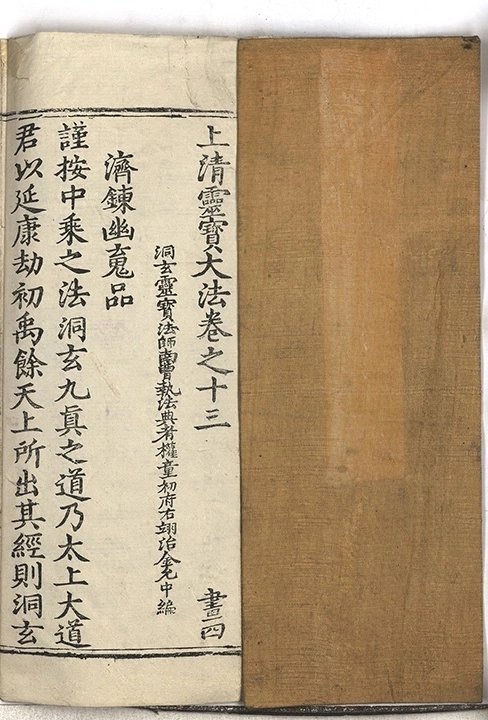 上清靈寶大法卷之十三 畫四
洞玄靈寶法師南曹執法典者權童初府右翊治金允中編
濟鍊幽䰟品
謹按中乘之法洞玄九真之道乃太上大道
君以延康劫初禹餘天上所出其經則洞玄